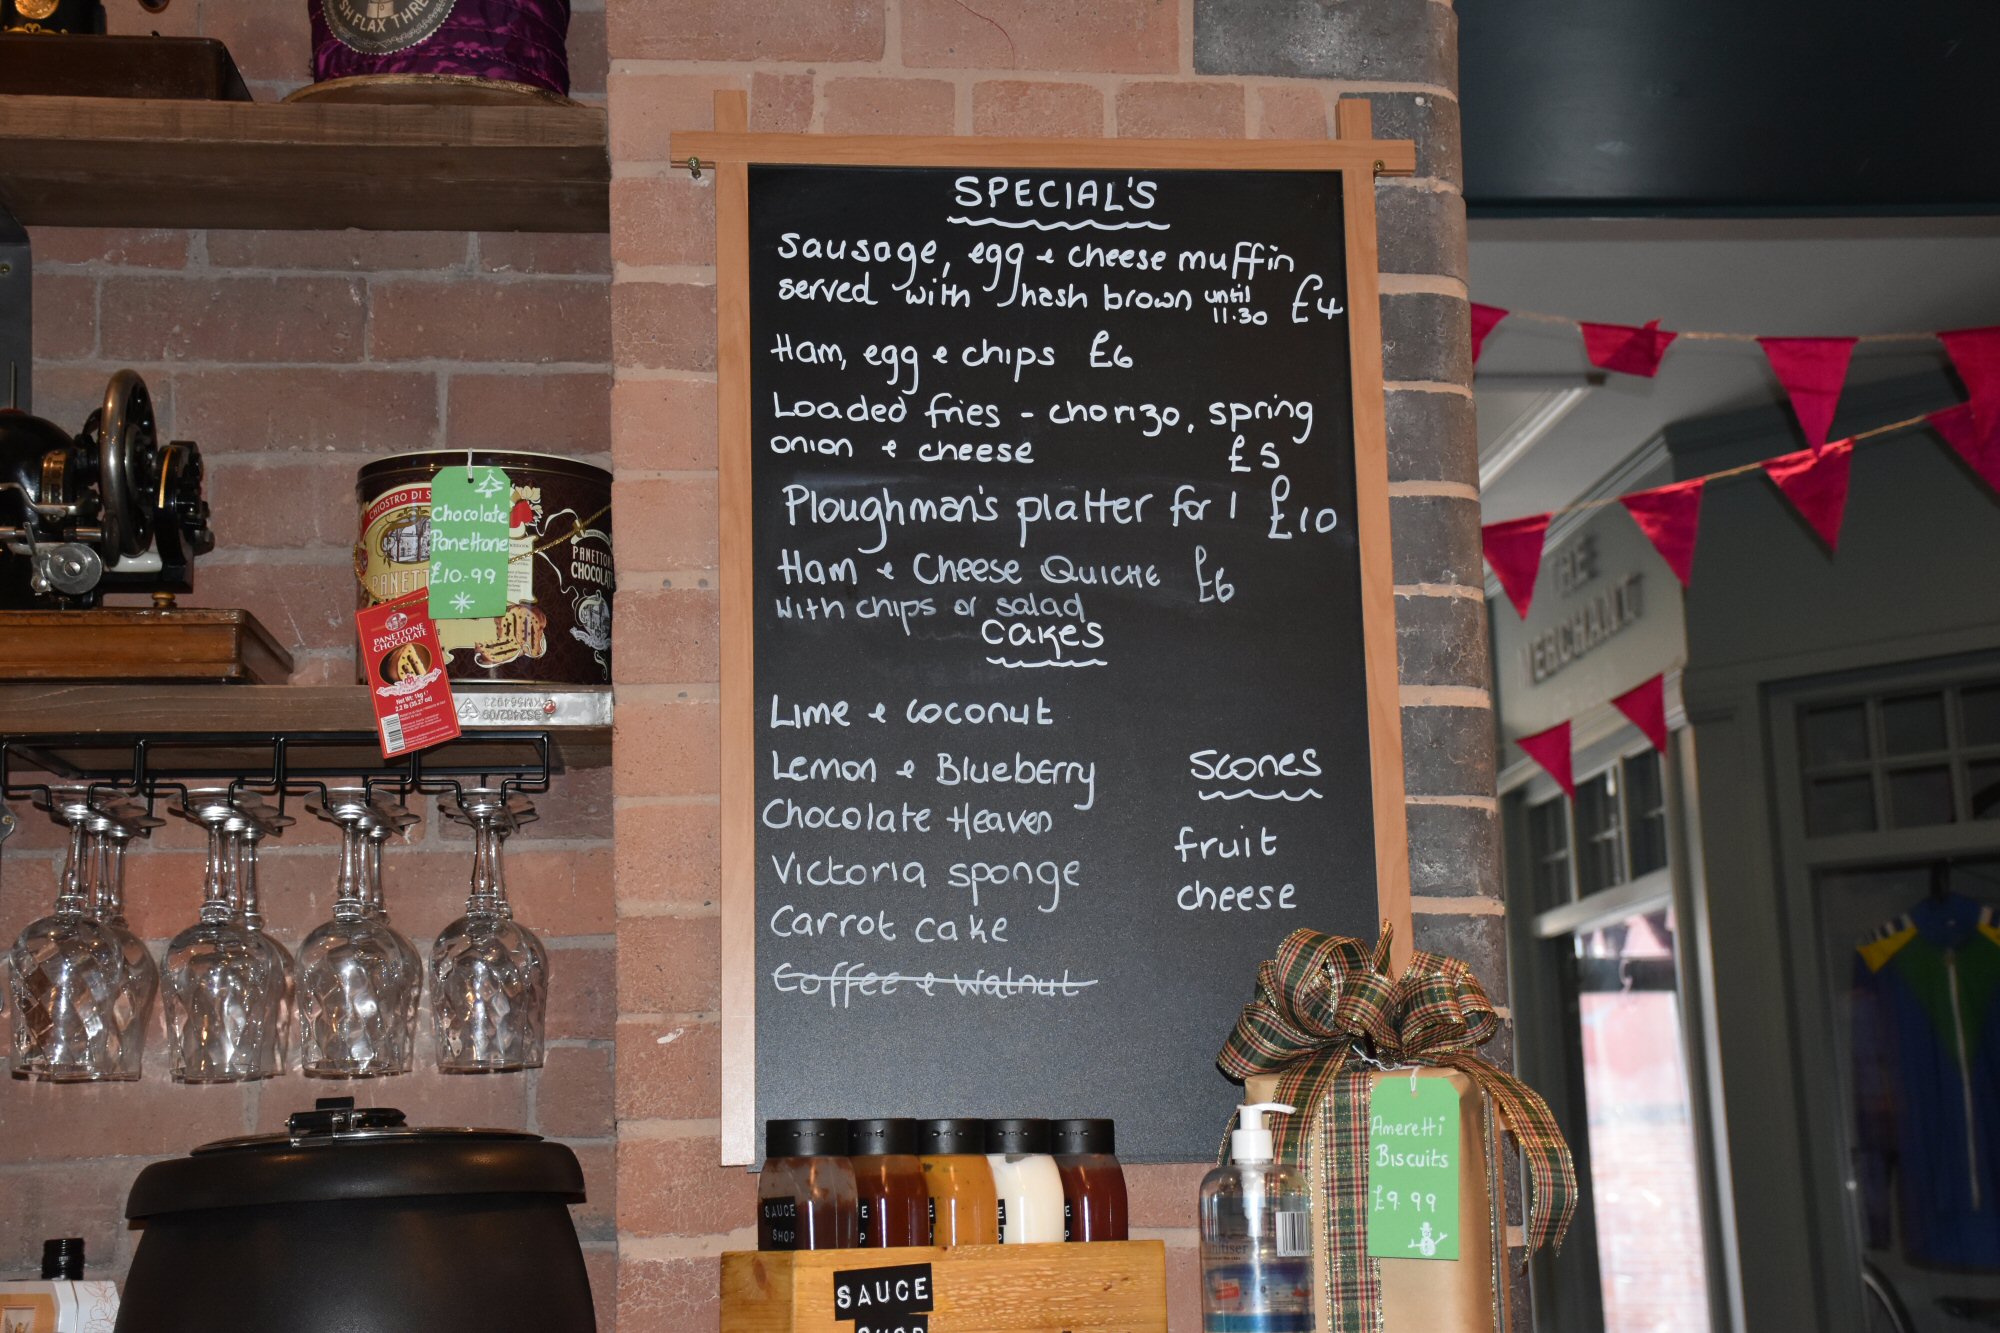 SH FLAX THRE
SPECIAL'S
Sausage, egg & cheese muffin
served with hash brown until 11.30 £4
Ham, egg & chips £6
Loaded fries - chorizo, spring
onion & cheese £5
Ploughman's platter for 1 £10
Ham & Cheese QUICHE £6
with chips or salad
Cakes
Lime & coconut
Lemon & Blueberry
Chocolate Heaven
Victoria sponge
Carrot cake
Coffee & Walnut
Scones
fruit
cheese
CHIOSTRO DI S
PANETT
Chocolate
Panettone
£10.99
PANETTONE
CHOCOLATE
Net Wt. 1kg e
2.2 lb (35.27 oz)
PANETTON
CHOCOLAT
THE
MERCHANT
Ameretti
Biscuits
£9.99
SAUCE
SHOP
E
P
E
E
P
E
P
SAUCE
SHOP
nitiser